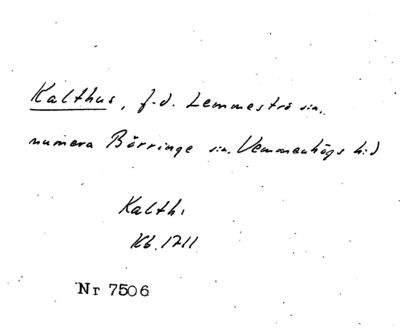 Kalthus, f.d. Lemmeströ sn.
numera Börringe sn. Vemmenhögs hd
Kalth.
Kb. 1711
Nr 7506